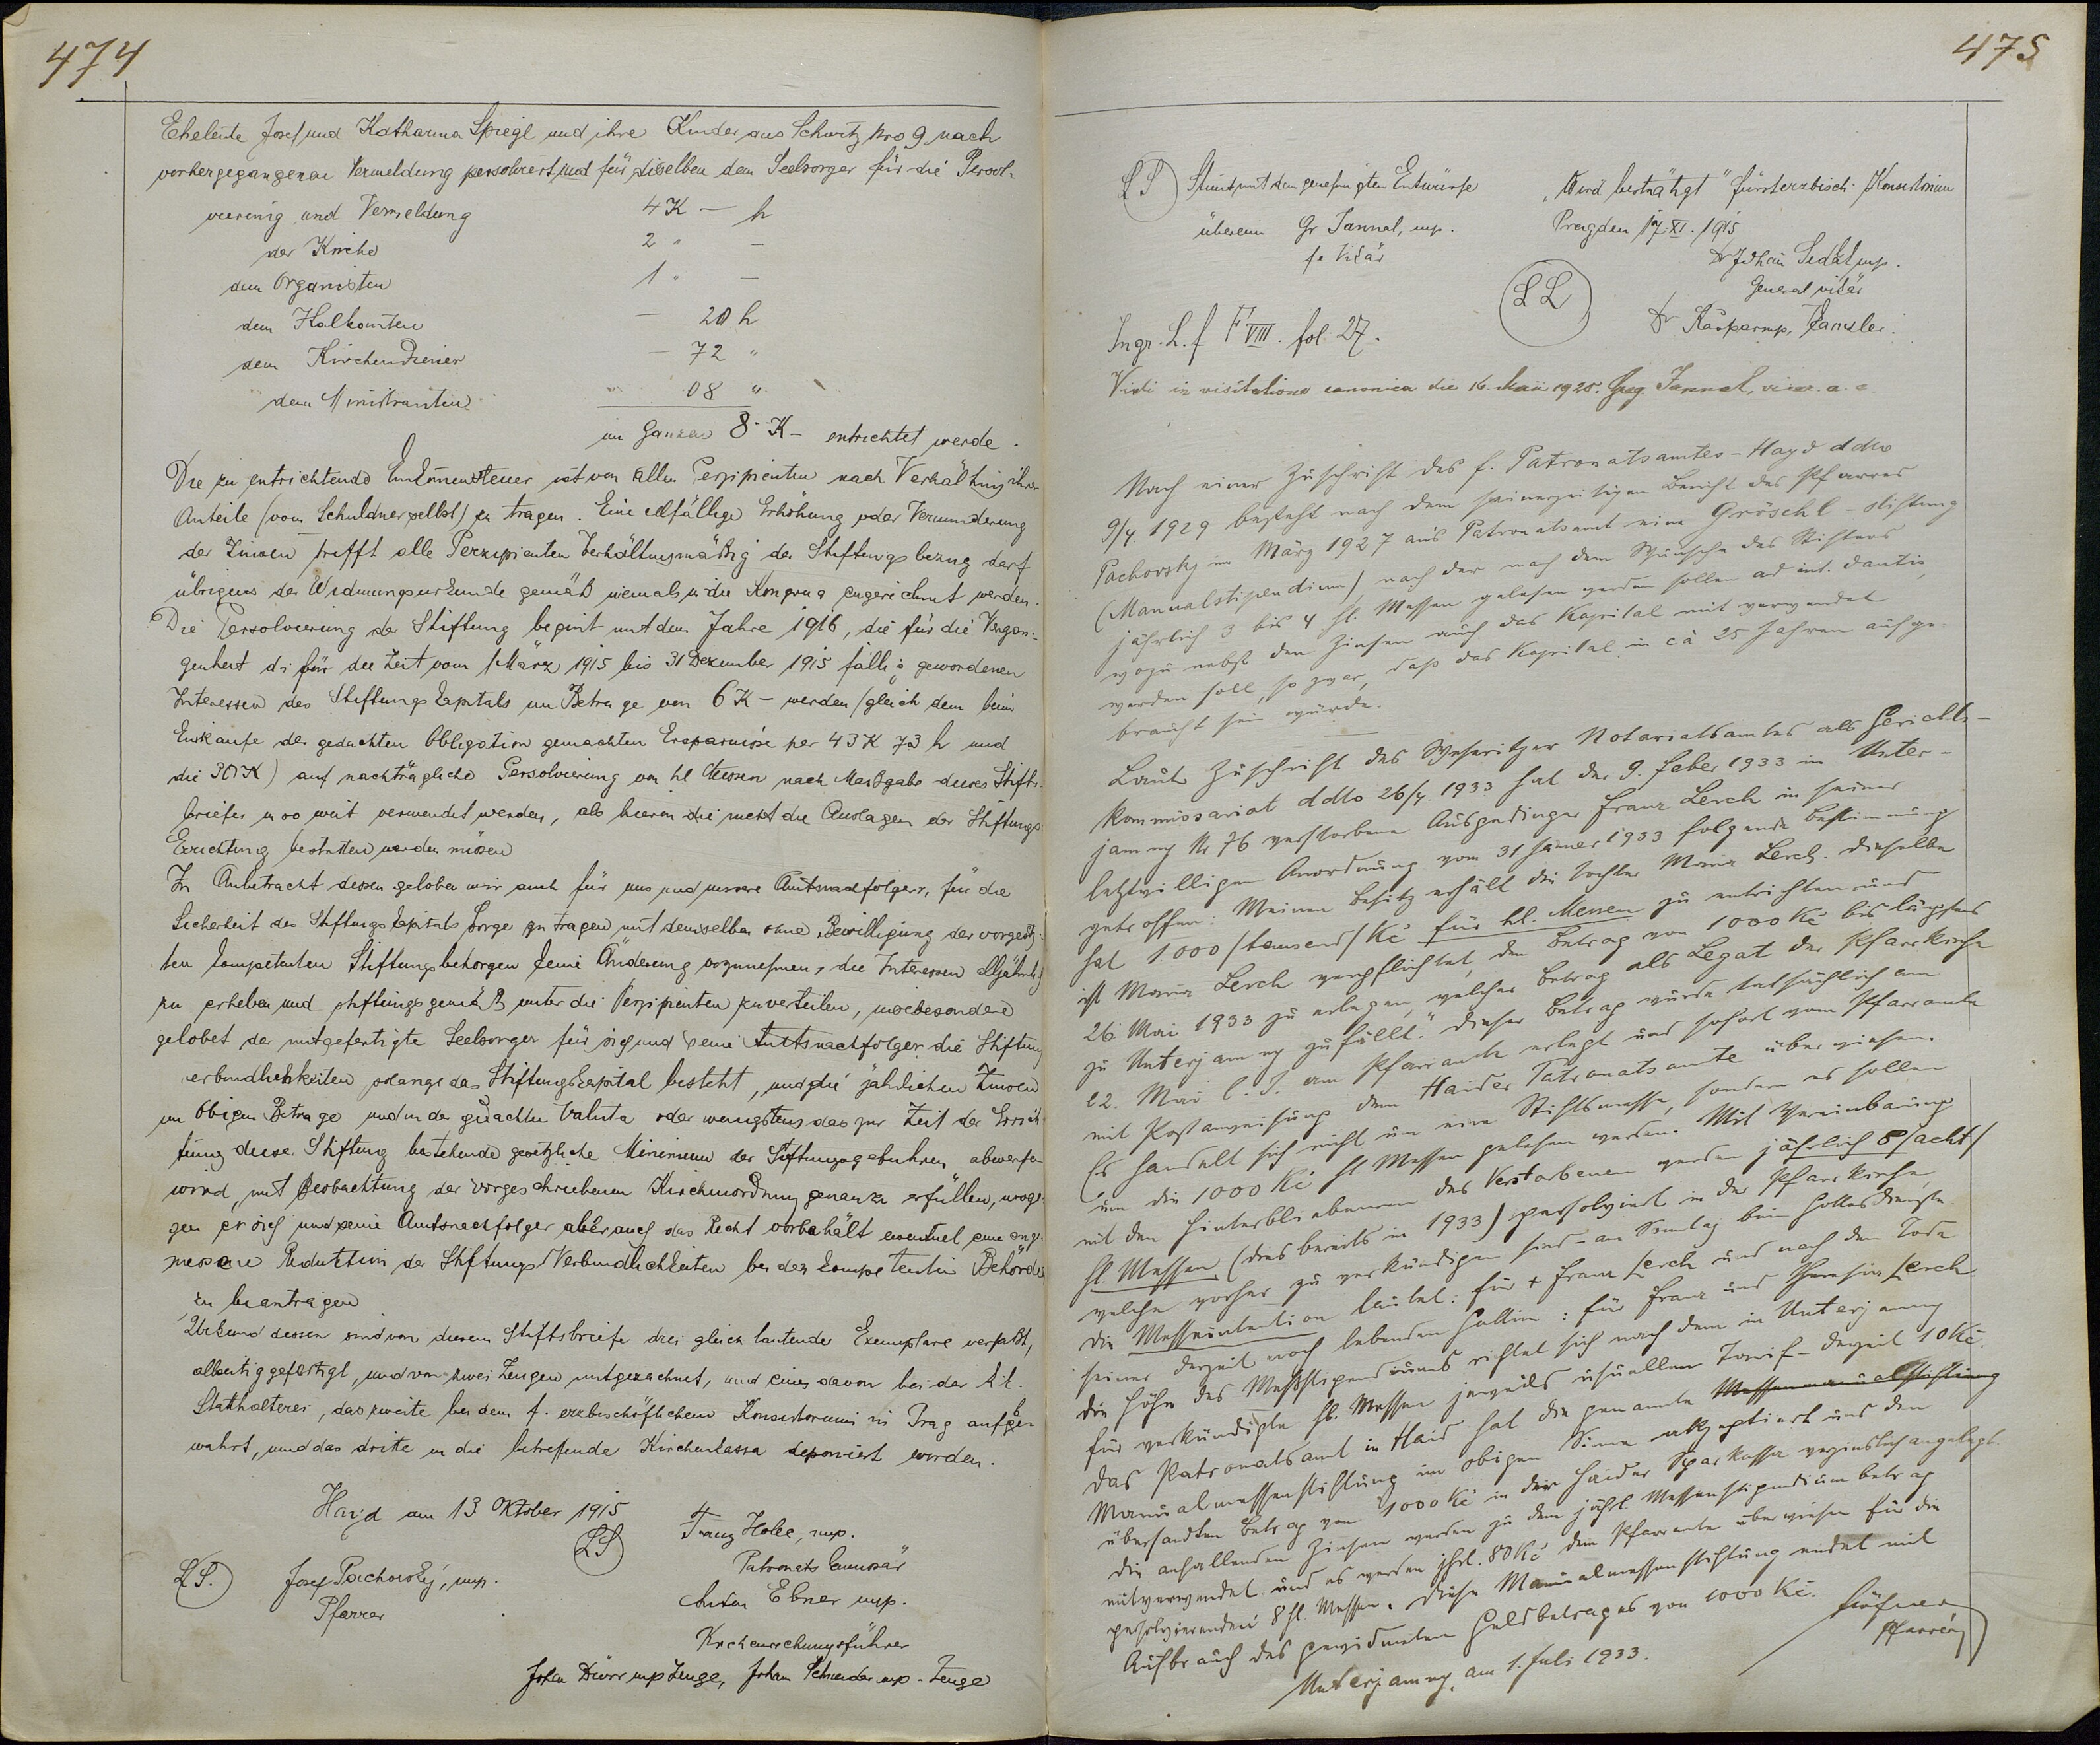 474
Eheleute Josef und Katharina Spiegl und ihre Kinder aus Schwitz Nro 9 nach
vorhergegangener Vermeldung persolviert und für dieselben dem Seelsorger für die Persol-
vierung und Vermeldung 4 K — h
der Kirche 2 " —
dem Organisten 1 " —
dem Kalkanten — 20 h
dem Kirchendiener — 72 "
dem Ministranten " 08 "
im Ganzen 8 K — entrichtet werde.
Die zu entrichtende Einkommensteuer ist von allen Perzipienten nach Verhältnis ihrer
Anteile (vom Schuldner selbst) zu tragen. Eine allfällige Erhöhung oder Verminderung
der Zinsen trifft alle Perzipienten verhältnismäßig der Stiftungsbezug darf
übrigens der Widmungsurkunde gemäß niemals in die Kongrua eingerechnet werden.
Die Persolvierung der Stiftung beginnt mit dem Jahre 1916, die für die Vergan-
genheit d.i für die Zeit vom 1 März 1915 bis 31 Dezember 1915 fällig gewordenen
Interessen des Stiftungskapitals im Betrage von 6 K — werden (gleich dem beim
Einkaufe der gedachten Obligation gemachten Ersparnisse per 43 K 73 h und
die 30 K) auf nachträgliche Persolvierung von hl Messen nach Maßgabe dieses Stifts-
briefes in so weit verwendet werden, als hievon die nicht die Auslagen der Stiftungs
Errichtung bestritten werden müssen
In Anbetracht dessen geloben wir auch für uns und unsere Amtsnachfolger, für die
Sicherheit des Stiftungskapitals Sorge zu tragen mit demselben ohne Bewilligung der vorgesetz-
ten kompetenten Stiftungsbehörgen keine Änderung vorzunehmen, die Interessen alljährlich
zu erheben und stiftungsgemäß unter die Perzipienten zu verteilen, insbesondere
gelobet der mitgefertigte Seelsorger für sich und seine Amtsnachfolger die Stiftungs
verbindlichkeiten solange das Stiftungskapital besteht, und die jährlichen Zinsen
im Obigen Betrage und in der gedachten Valuta oder wenigstens das zur Zeit der Errich
tung diese Stiftung bestehende gesetzliche Minimum der Stiftungsgebühren abwerfen
wird, mit Beobachtung der vorgeschriebenen Kirchenordnung genau zu erfüllen, woge
gen er sich und seine Amtsnachfolger aber auch das Recht vorbehält eventuel eine ange
messene Reduktion der Stiftungs Verbindlichkeiten bei der kompetenten Behörde
zu beantragen
Urkund dessen sind von diesem Stiftsbriefe drei gleich lautende Exemplare verfaßt,
allseitig gefertigt, und von zwei Zeugen mitgezeichnet, und eines davon bei der k.k.
Statthalterei, das zweite bei dem f. erzbischöflichem Konsistorium in Prag aufbe
wahrt, und das dritte in die betreffende Kirchenkassa deponiert worden.
Hayd am 13 Oktober 1915
LS Franz Holee, mp.
Patronats
LS. Josef Pachovský, mp. Anton Ebner mp.
Pfarrer Kirchenrechnungsführer
Johan Dürr mp Zeuge, Johan Schneider mp. Zeuge
475
LS Stimmt mit dem genehmigten Entwürfe
überein Gr Jannal, mp.
f.e. Vikär
„Wird bestätigt" fürsterzbisch. Konsistorium
Prag den 17.XI.1915
Dr Johan Sedlak mp.
General vikär
LL
Dr Kašpar mp, Kanzler.
Ingr. L.f F VIII. fol. 27.
Vidi in visitatione canonica die 16. Maii 1925. Greg. Jannal, vicar. a. e.
Nach einer Zuschrift des f. Patronatsamtes-Hayd ddto
9/4. 1929 besteht nach dem seinerzeitigen Bericht des Pfarrers
Pachovský im März 1927 ans Patronatsamt eine Gröschl-Stiftung
(Manualstipendium), nach der nach dem Wunsche des Stifters
jährlich 3 bis 4 hl. Messen gelesen werden sollen ad int. dantis,
wozu nebst den Zinsen auch das Kapital mit verwendet
werden soll, so zwar, daß das Kapital in cà 25 Jahren aufge-
braucht sein würde.
Laut Zuschrift des Weseritzer Notariatsamtes als Gerichts-
kommissariat ddto 26/4. 1933 hat der 9. Feber 1933 in Unter-
jamny Nr 76 verstorbene Ausgedinger Franz Lerch in seiner
letztwilligen Anordnung vom 31 Jänner 1933 folgende Bestimmung
getroffen: Meinen Besitz erhält die Tochter Maria Lerch. Dieselbe
hat 1.000 /tausend/ Kč für hl. Messen zu entrichten und
ist Maria Lerch verpflichtet, den Betrag von 1000 Kč bis längstens
26. Mai 1933 zu erlegen, welcher Betrag als Legat der Pfarrkirche
zu Unterjamny zufällt." Dieser Betrag wurde tatsächlich am
22. Mai l. J. am Pfarramte erlegt und sofort vom Pfarramte
mit Postanweisung dem Haider Patronatsamte überwiesen.
Es handelt sich nicht um eine Stiftsmesse, sondern es sollen
um die 1000 Kč hl. Messen gelesen werden. Mit Vereinbarung
mit den Hinterbliebenen des Verstorbenen werden jährlich 8 /acht/
hl. Messen (dies bereits in 1933) persolviert in der Pfarrkirche,
welche vorher zu verkündigen sind - am Sonntag beim Gottesdienste.
Die Messeintention lautet: für + Franz Lerch und nach dem Tode
seiner derzeit noch lebenden Gattin: für Franz und Theresia Lerch.
Die Höhe des Meßstipendiums richtet sich nach dem in Unterjamny
für verkündigte hl. Messen jeweils usuellen Tarif - derzeit 10 Kč.
Das Patronatsamt in Haid hat die genannte Messenmanualstiftung
Manualmessenstiftung im obigen Sinne akzeptiert und den
übersandten Betrag von 1000 Kč in der Haider Sparkassa verzinslich angelegt.
Die anfallenden Zinsen werden zu dem jährl. Messenstipendiumbetrag
mitverwendet und es werden jhrl. 80 Kč dem Pfarramte überwiesen für die
persolvierenden 8 hl. Messen. Diese Manualmessenstiftung endet mit
Aufbrauch des gewidmeten Geldbetrages von 1000 Kč.
Unterjamny, am 1. Juli 1933.
Pfarrer